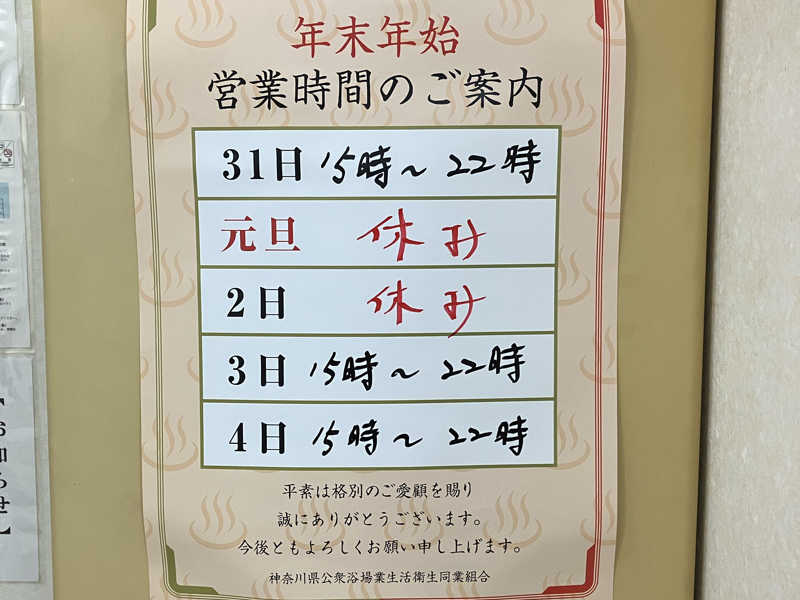 年末年始
営業時間のご案内
31日 15時～22時
元旦 休み
2日 休み
3日 15時～22時
4日 15時～22時
平素は格別のご愛顧を賜り
誠にありがとうございます。
今後ともよろしくお願い申し上げます。
神奈川県公衆浴場業生活衛生同業組合
【お知らせ】